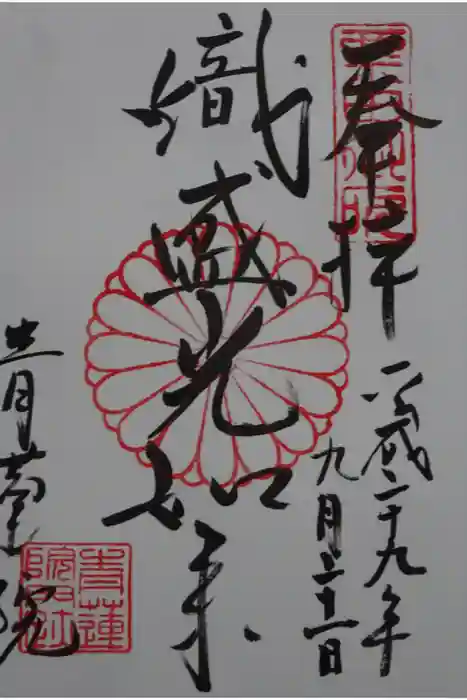 奉拝
平成二十九年
九月二十二日
熾盛光如来
青蓮院
青蓮
院門跡